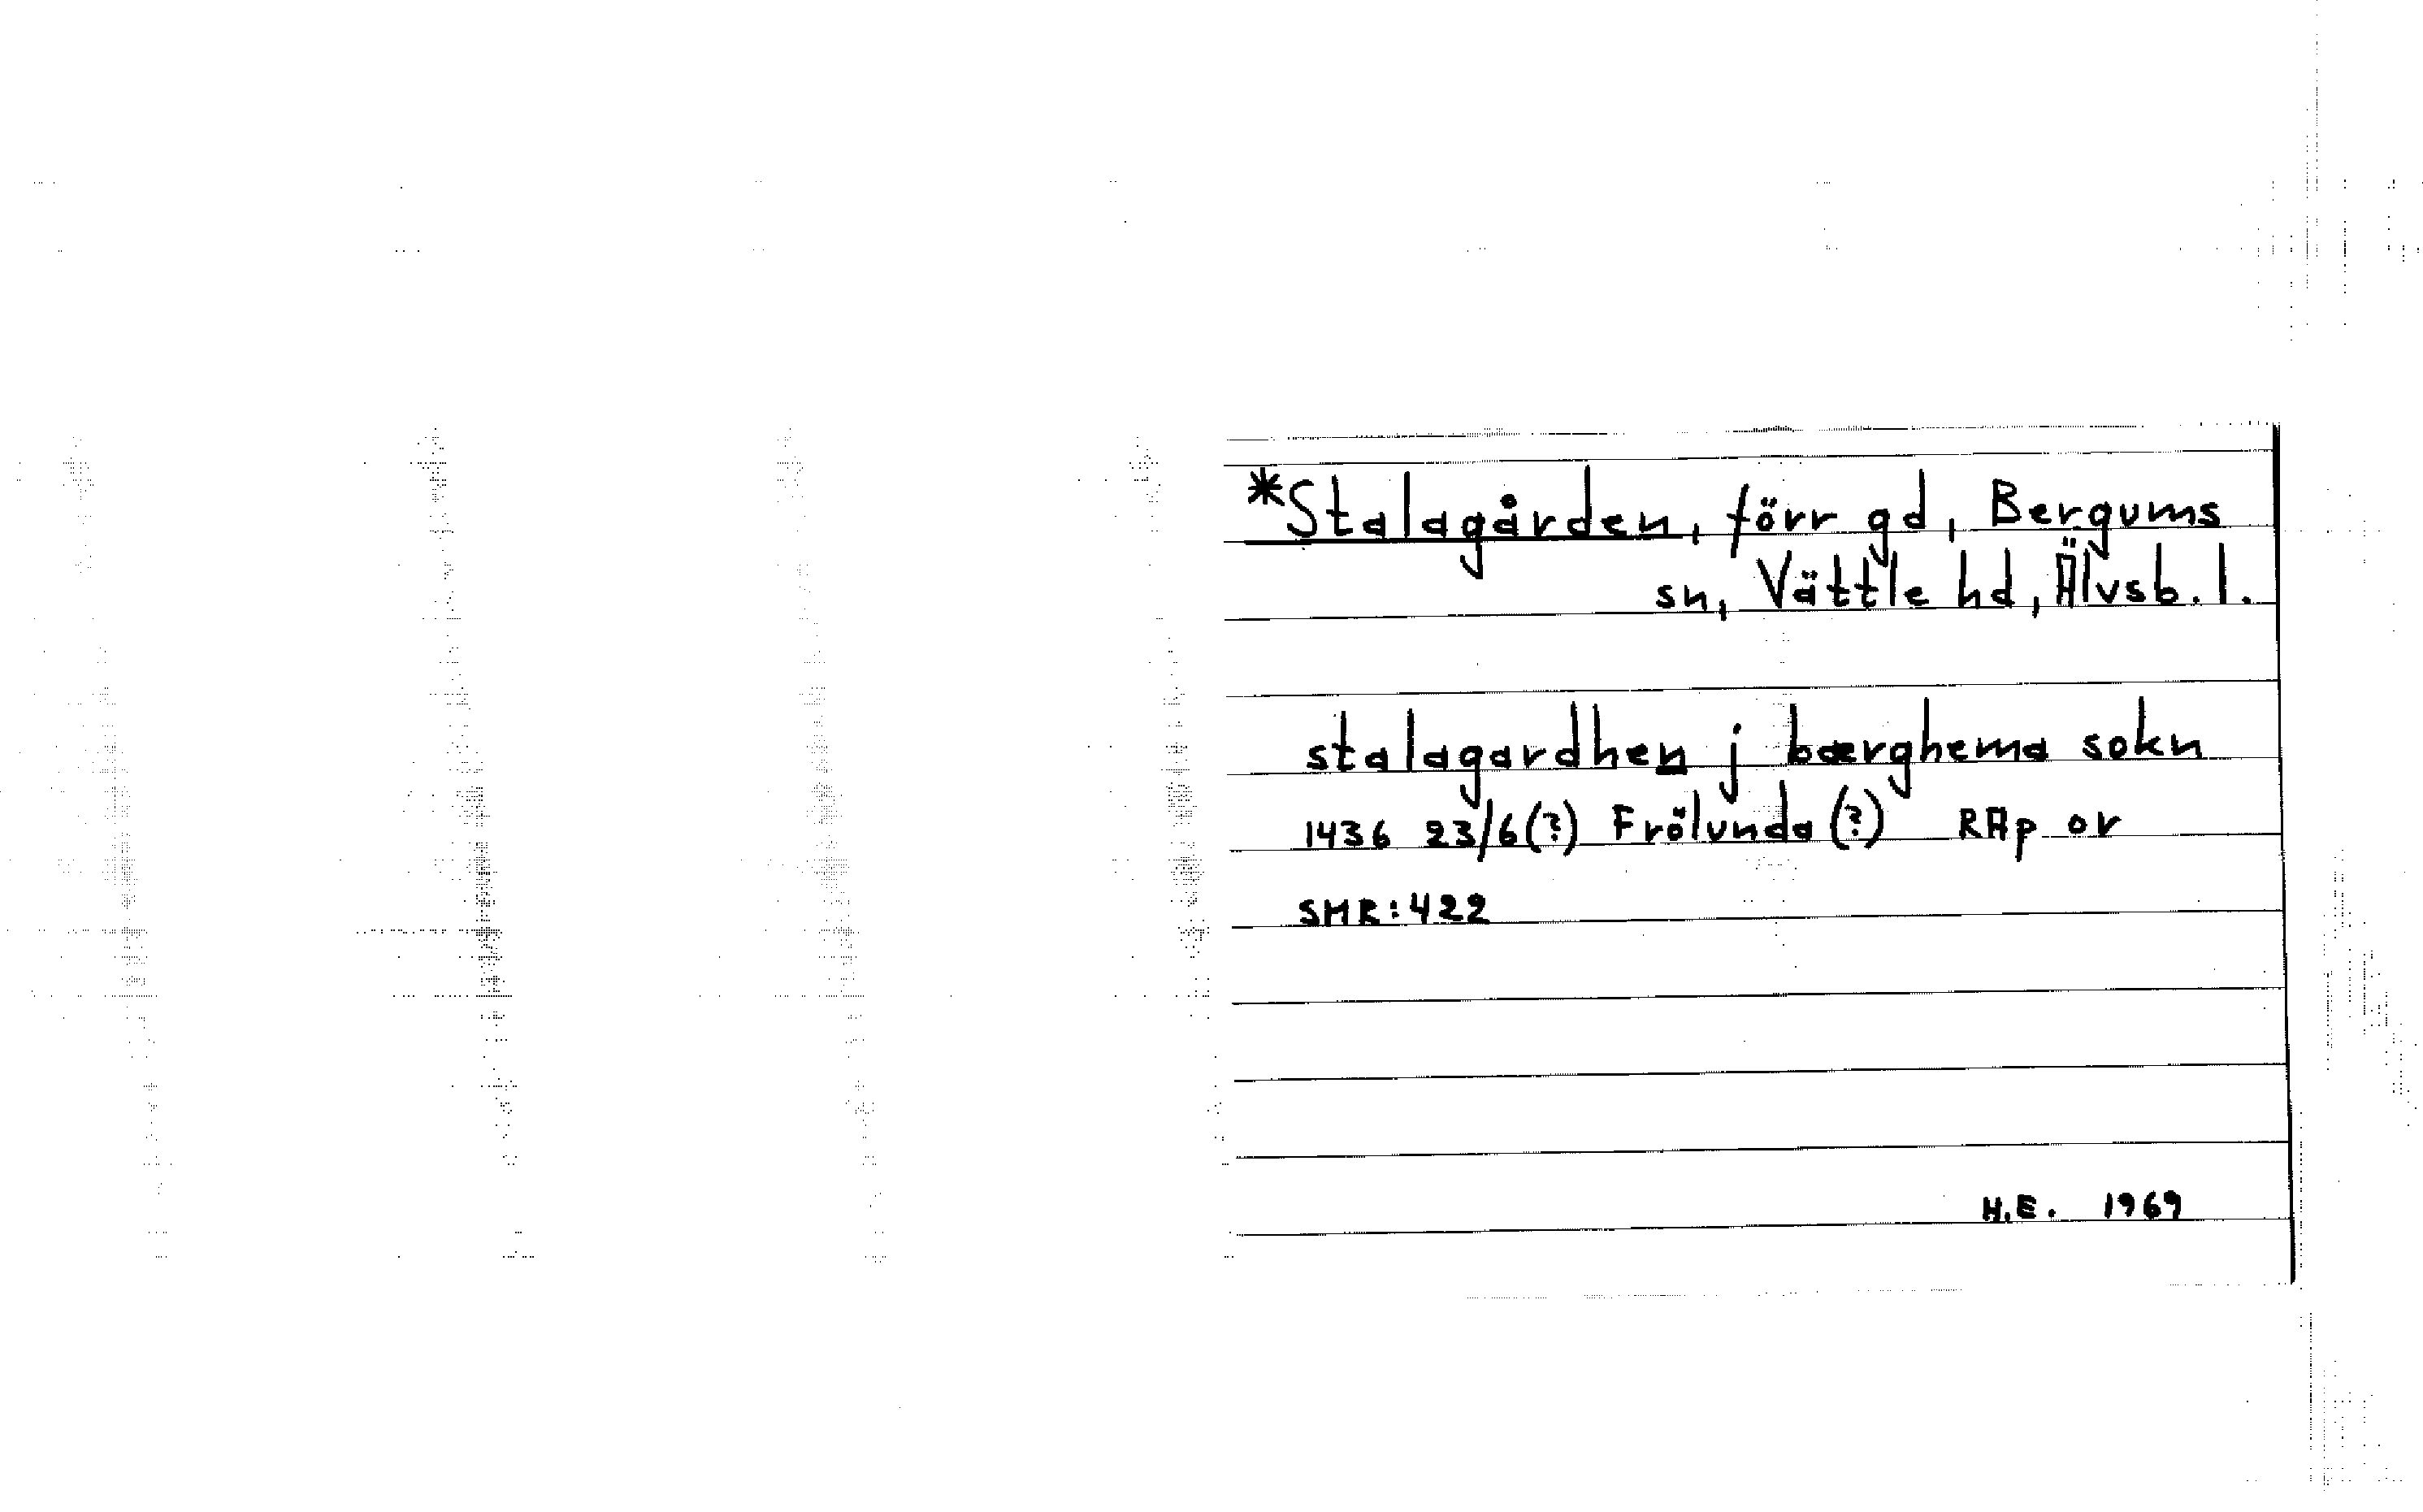 *Stalagården, förr gd, Bergums
sn, Vättle hd, Älvsb. l.
stalagardhen j bærghema sokn
1436 23/6(?) Frölunda (?) RAp or
SMR: 422
H.E. 1969